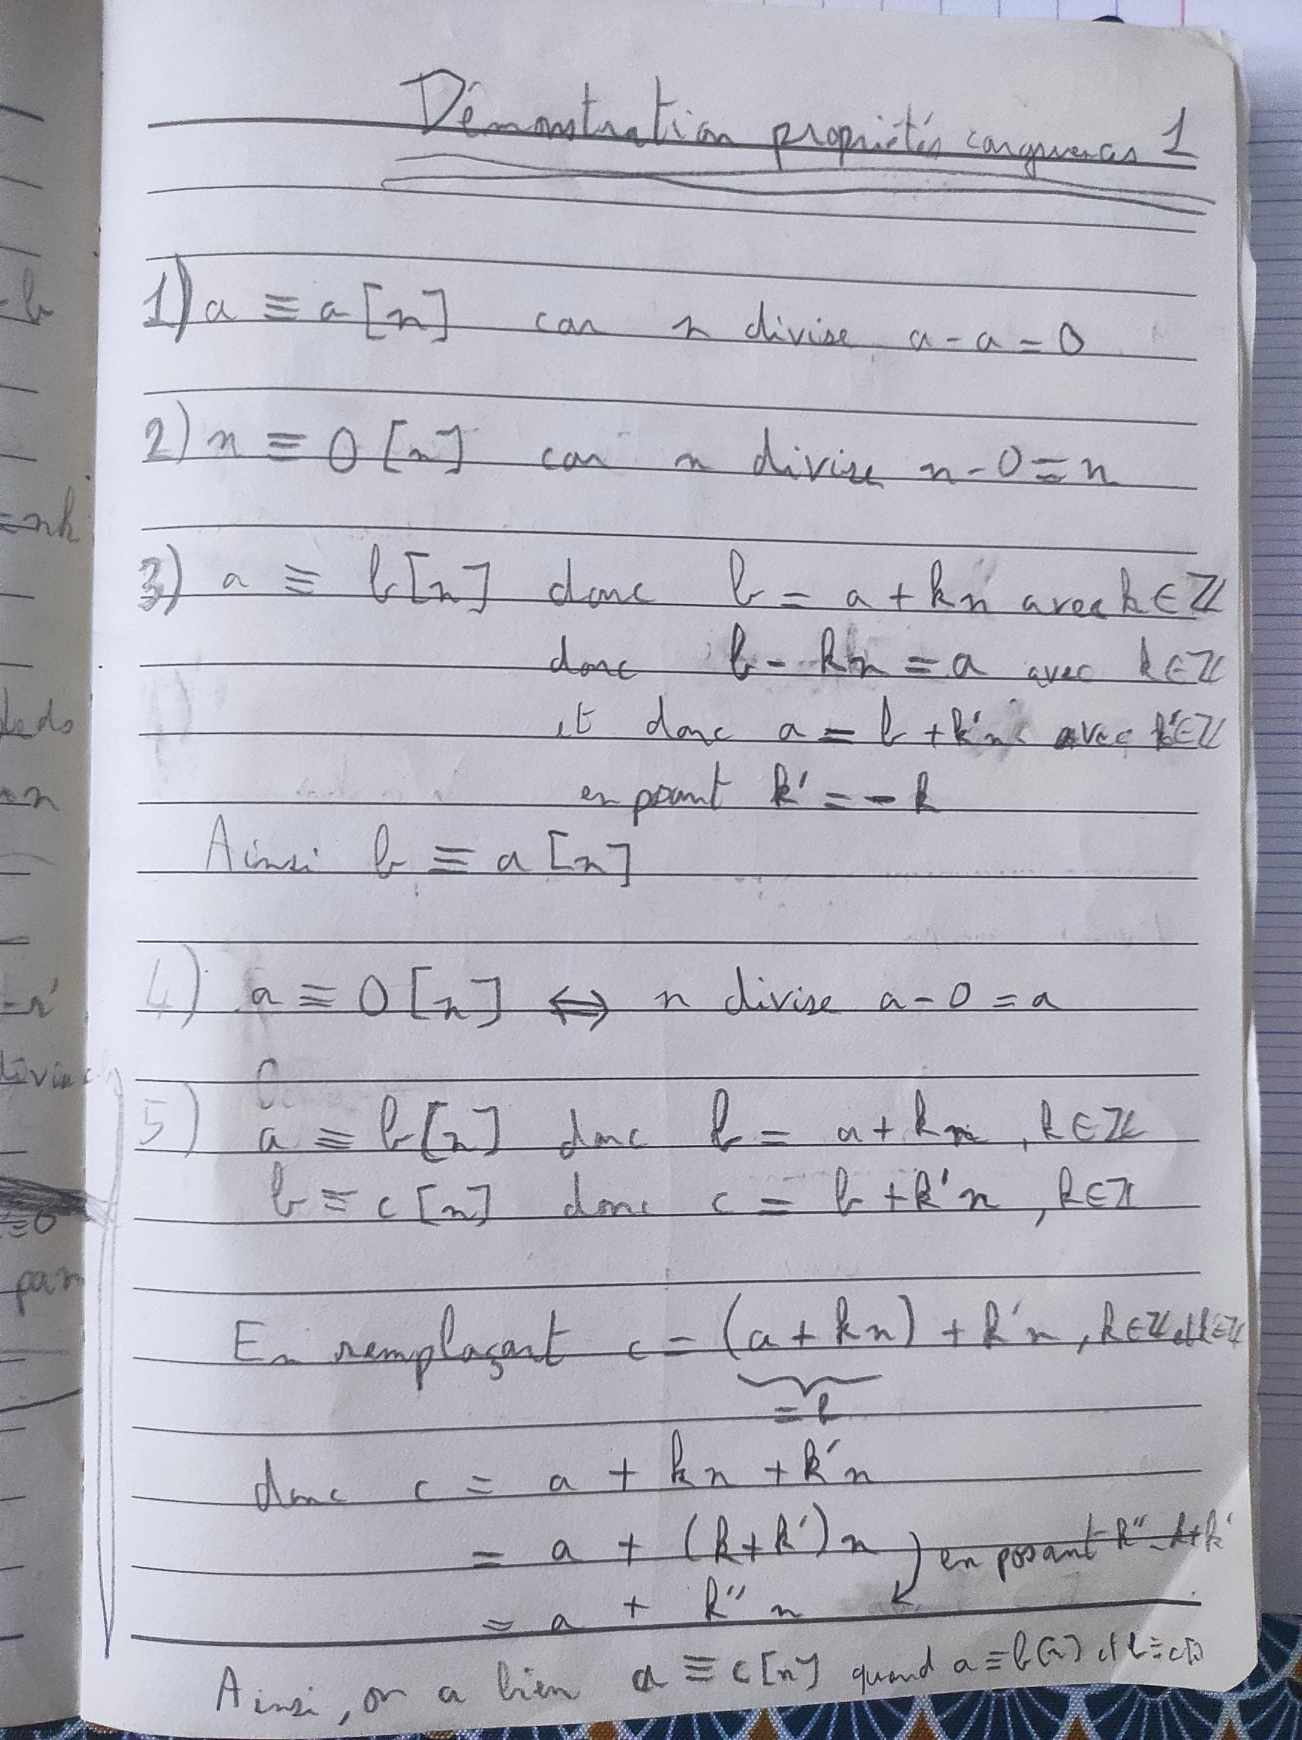 Démonstration propriétés congruences 1
1) a ≡ a [n] car n divise a - a = 0
2) n ≡ 0 [n] car n divise n - 0 = n
3) a ≡ b [n] donc b = a + kn avec k ∈ ℤ
donc b - kn = a avec k ∈ ℤ
et donc a = b + k'n avec k' ∈ ℤ
en posant k' = - k
Ainsi b ≡ a [n]
4) a ≡ 0 [n] ⇔ n divise a - 0 = a
5) a ≡ b [n] donc b = a + kn, k ∈ ℤ
b ≡ c [n] donc c = b + k'n, k ∈ ℤ
En remplaçant c = (a + kn) + k'n, k ∈ ℤ et k ∈ ℤ
= b
donc c = a + kn + k'n
= a + (k + k')n en posant k'' = k + k'
= a + k'' n
Ainsi, on a bien a ≡ c [n] quand a ≡ b [n] et b ≡ c [n]
=b
=nk
on
-r'
=0
par